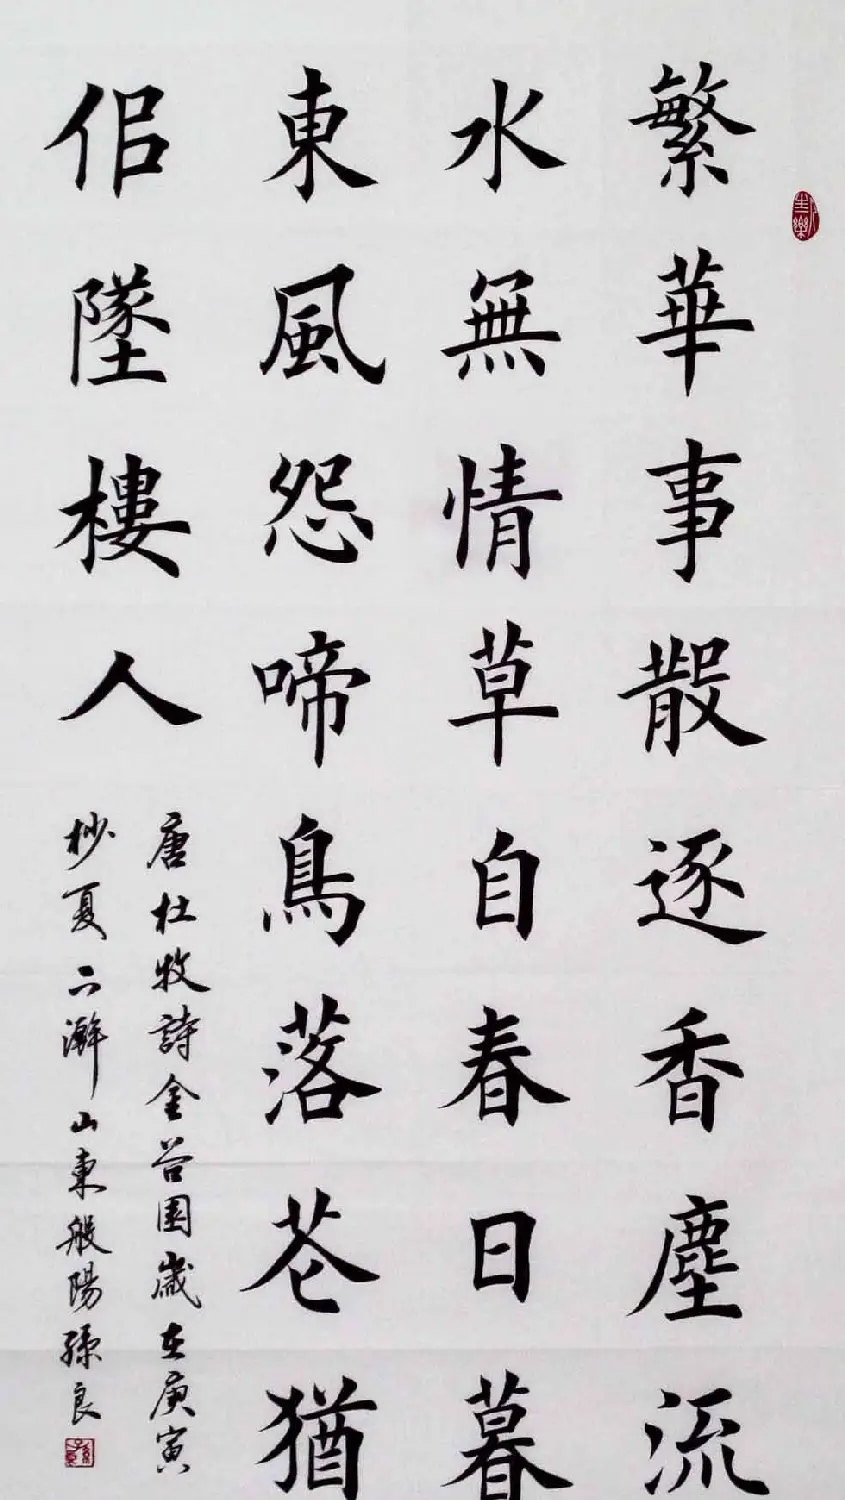 繁華事散逐香塵流
水無情草自春日暮
東風怨啼鳥落花猶
佀墜樓人
唐杜牧詩金谷園歲在庚寅
杪夏於濰山東般陽孫良